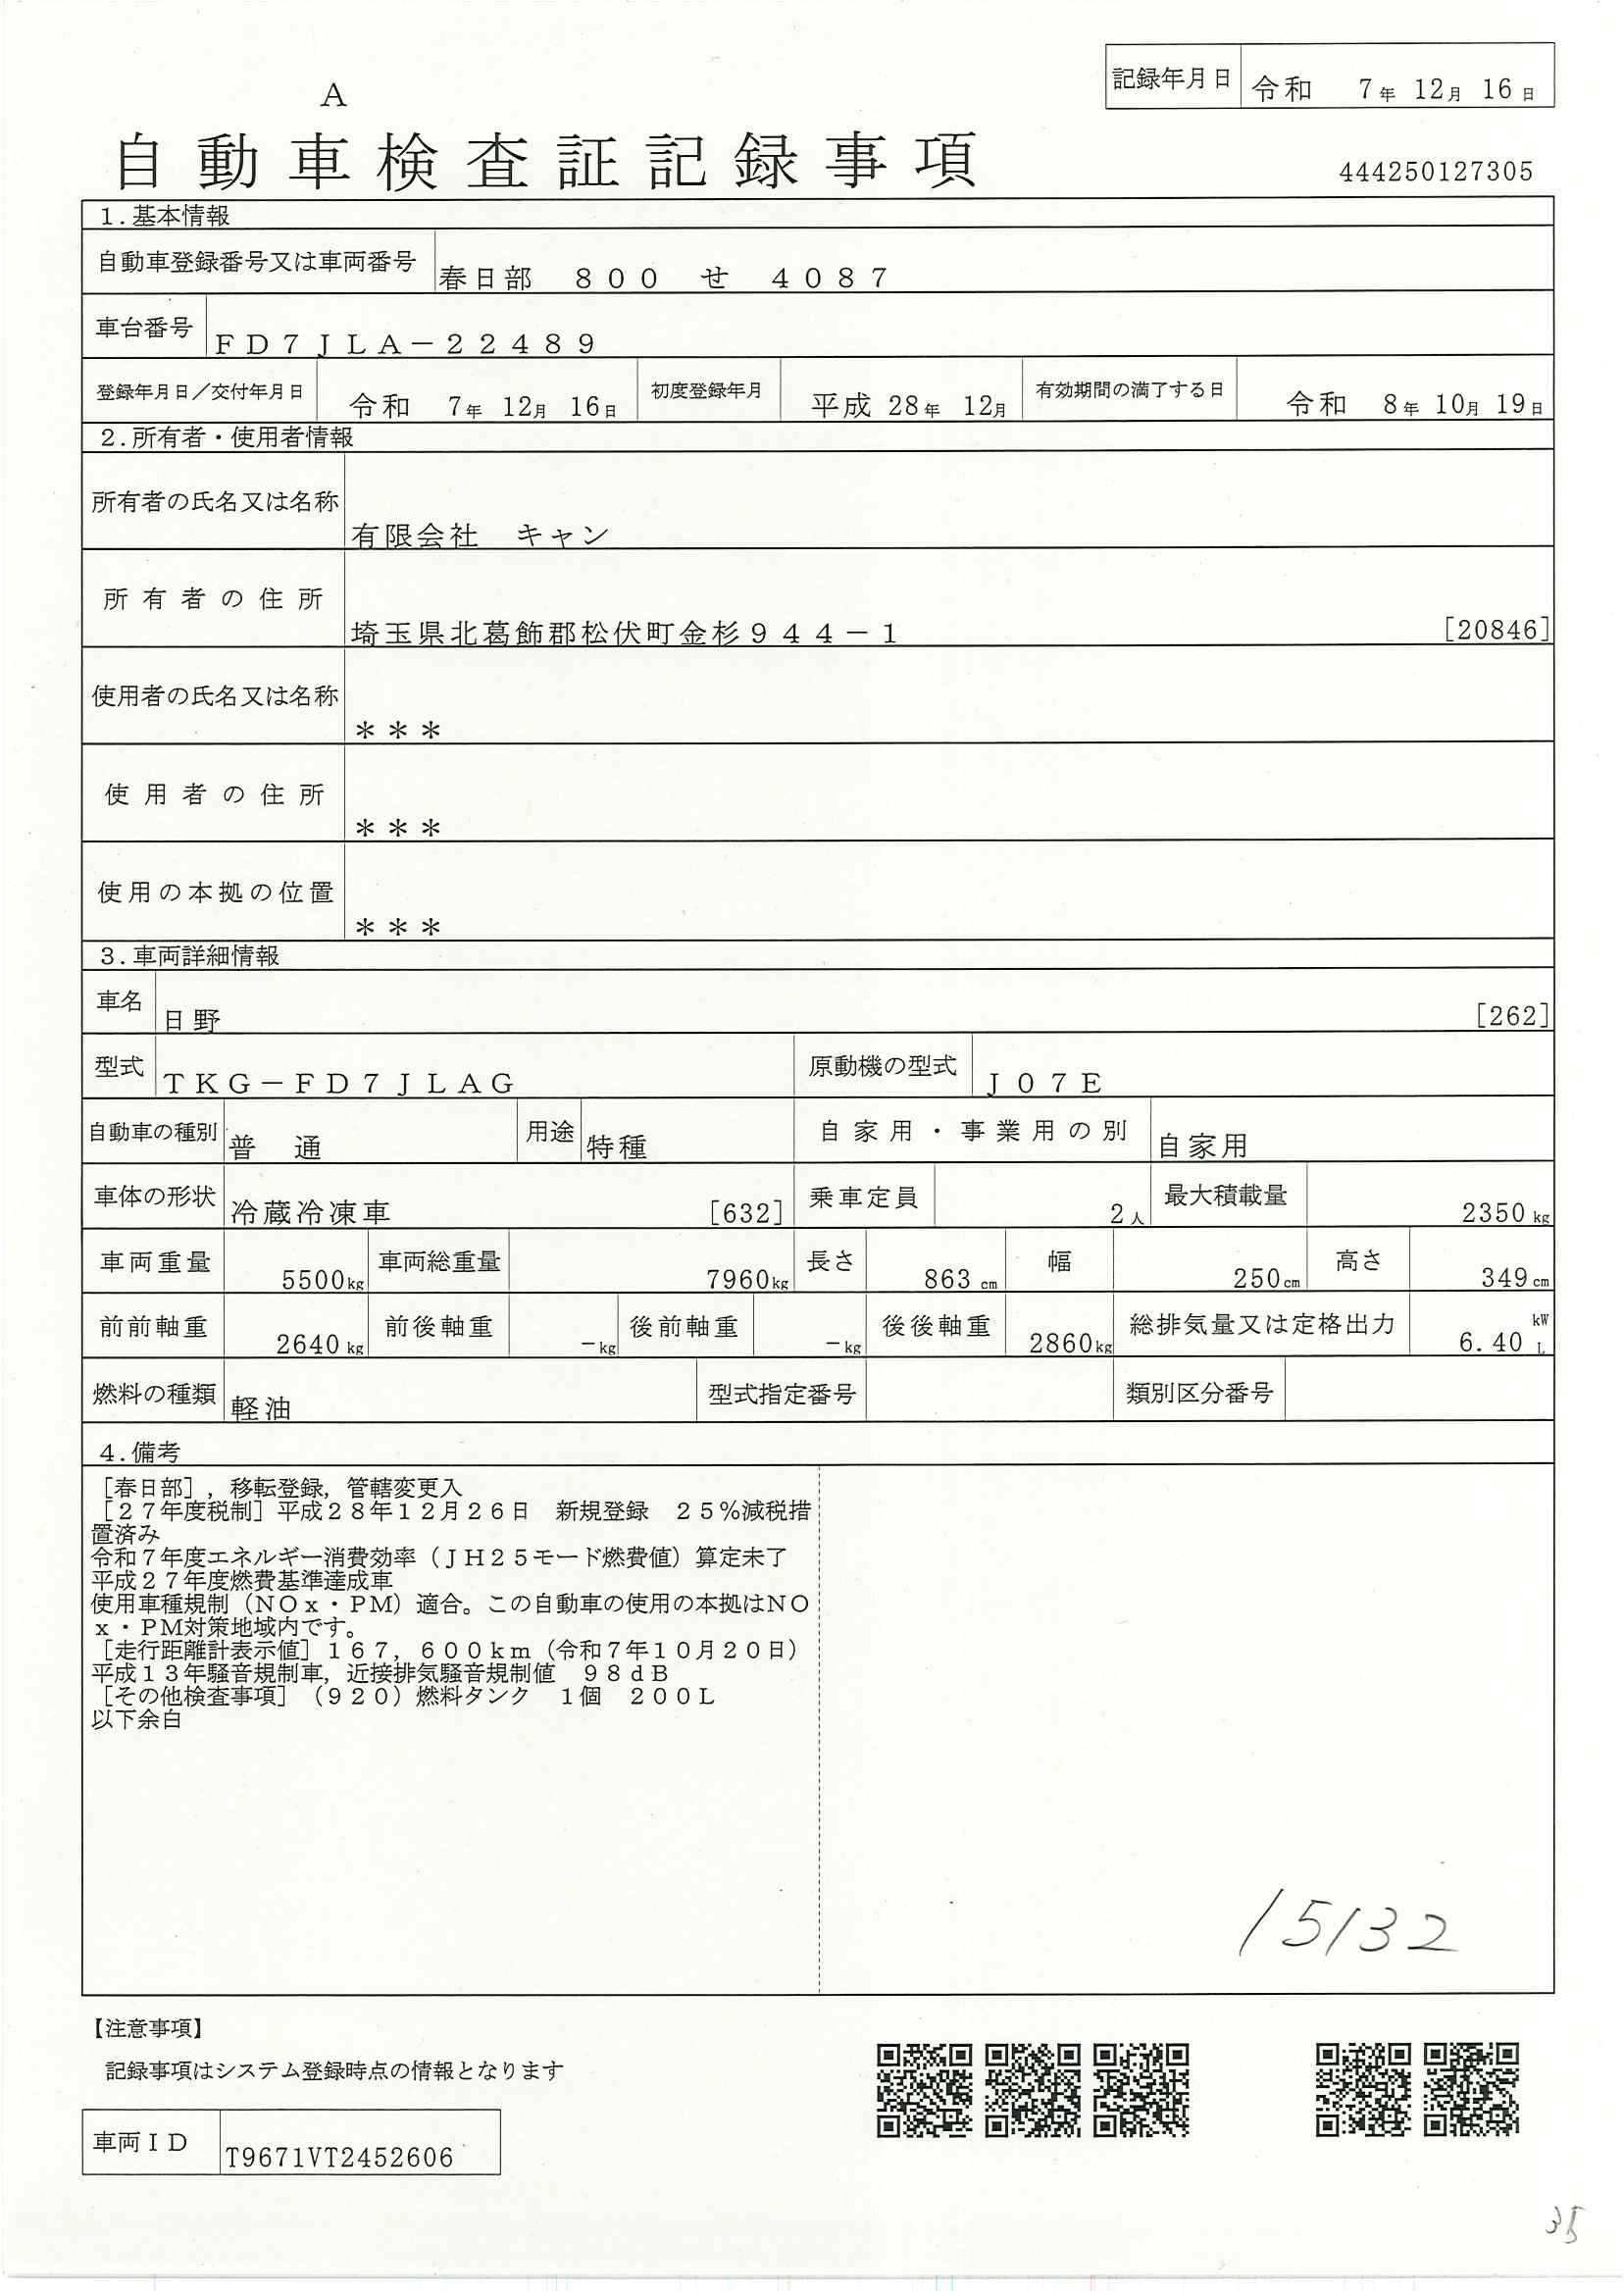 記録年月日 令和 7年 12月 16日
A
自動車検査証記録事項
444250127305
1.基本情報
自動車登録番号又は車両番号 春日部 800 せ 4087
車台番号 FD7JLA-22489
登録年月日/交付年月日 令和 7年 12月 16日 初度登録年月 平成 28年 12月 有効期間の満了する日 令和 8年 10月 19日
2.所有者・使用者情報
所有者の氏名又は名称 有限会社 キャン
所有者の住所 埼玉県北葛飾郡松伏町金杉944-1 [20846]
使用者の氏名又は名称 ***
使用者の住所 ***
使用の本拠の位置 ***
3.車両詳細情報
車名 日野 [262]
型式 TKG-FD7JLAG 原動機の型式 J07E
自動車の種別 普 通 用途 特種 自家用・事業用の別 自家用
車体の形状 冷蔵冷凍車 [632] 乗車定員 2人 最大積載量 2350kg
車両重量 5500kg 車両総重量 7960kg 長さ 863cm 幅 250cm 高さ 349cm
前前軸重 2640kg 前後軸重 -kg 後前軸重 -kg 後後軸重 2860kg 総排気量又は定格出力 6.40 kW L
燃料の種類 軽油 型式指定番号 類別区分番号
4.備考
[春日部],移転登録,管轄変更入
[27年度税制]平成28年12月26日 新規登録 25%減税措
置済み
令和7年度エネルギー消費効率(JH25モード燃費値)算定未了
平成27年度燃費基準達成車
使用車種規制(NOx・PM)適合。この自動車の使用の本拠はNO
x・PM対策地域内です。
[走行距離計表示値]167,600km(令和7年10月20日)
平成13年騒音規制車,近接排気騒音規制値 98dB
[その他検査事項](920)燃料タンク 1個 200L
以下余白
15132
【注意事項】
記録事項はシステム登録時点の情報となります
車両ID T9671VT2452606